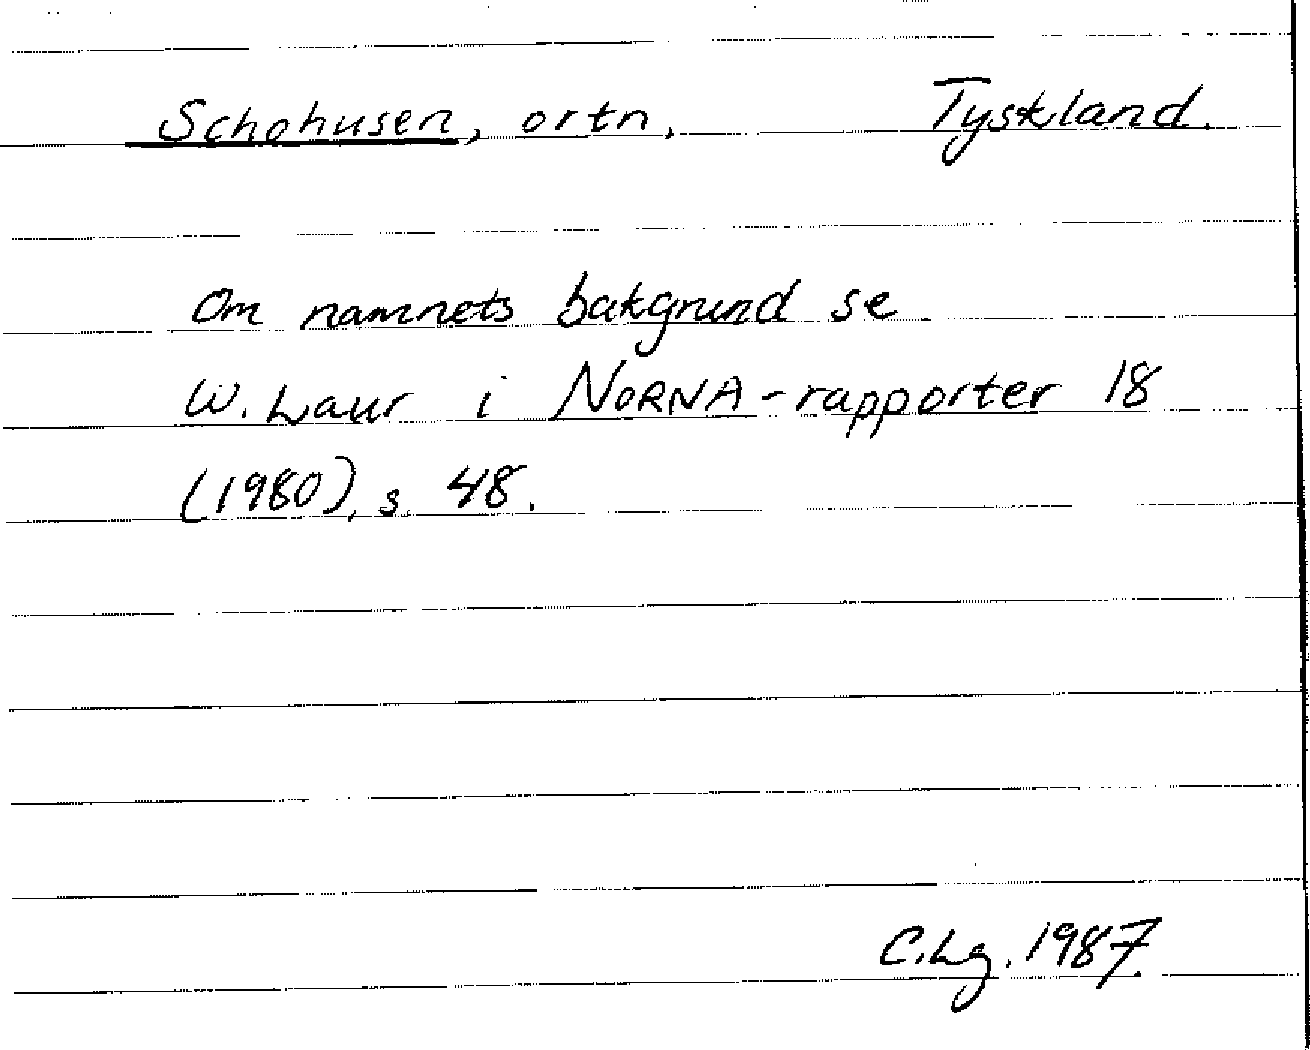 Schohusen, ortn.
Tyskland.
Om namnets bakgrund se
W. Laur i NORNA-rapporter 18
(1980), s. 48.
C.Lg. 1987.